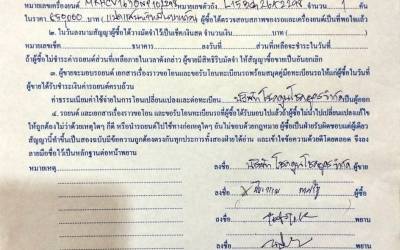 หมายเลขตัวถัง MRHCV1630 หมายเลขเครื่อง L15 จำนวน 1 คัน
ในราคา 850,000 บาท ( ) ผู้ซื้อได้ตรวจสอบสภาพของรถและเครื่องยนต์เป็นที่พอใจแล้ว
2. ในวันลงนามสัญญาผู้ซื้อได้วางมัดจำไว้เป็นเช็คเงินสด จำนวนเงิน บาท
หมายเลขเช็ค ธนาคาร ลงวันที่ ส่วนที่เหลือจะชำระในวันที่
ถ้าผู้ซื้อไม่ชำระค่ารถยนต์ ภายในเวลาดังกล่าว ผู้ซื้อยินดีให้ริบเงินมัดจำซื้อขายเป็นอันยกเลิก
3. ผู้ขายจะมอบรถยนต์ เอกสารเรื่องราวขอโอน และขอรับโอนทะเบียนรถพร้อมสมุดคู่มือทะเบียนรถให้แก่ผู้ซื้อในวันที่
ผู้ซื้อได้ชำระราคารถครบถ้วน
ค่าธรรมเนียมค่าใช้จ่ายในการโอนเปลี่ยนแปลงและต่อทะเบียน เป็นผู้ออก
4. รถยนต์ และเอกสารเรื่องราวขอโอน และขอรับโอนทะเบียนรถที่ผู้ซื้อได้รับมอบไปแล้วถ้าผู้ซื้อไม่นำไปเปลี่ยนแปลงแก้ไข
ให้ถูกต้องไม่ว่าด้วยเหตุใดๆ ก็ดี หรือนำรถยนต์ไปใช้ทางก่อเหตุใดๆ อันไม่ชอบด้วยกฎหมาย ผู้ซื้อเป็นฝ่ายรับผิดชอบแต่ผู้เดียว
สัญญานี้ทำขึ้นเป็นสองฉบับมีข้อความถูกต้องตรงกันทุกประการทั้งสองฝ่ายได้อ่าน และเข้าใจข้อความด้วยดีโดยตลอด จึงลง
ลายมือชื่อไว้เป็นหลักฐานต่อหน้าพยาน
หมายเหตุ ลงชื่อ ผู้ขาย
ลงชื่อ ผู้ซื้อ
ลงชื่อ พยาน
ลงชื่อ พยาน